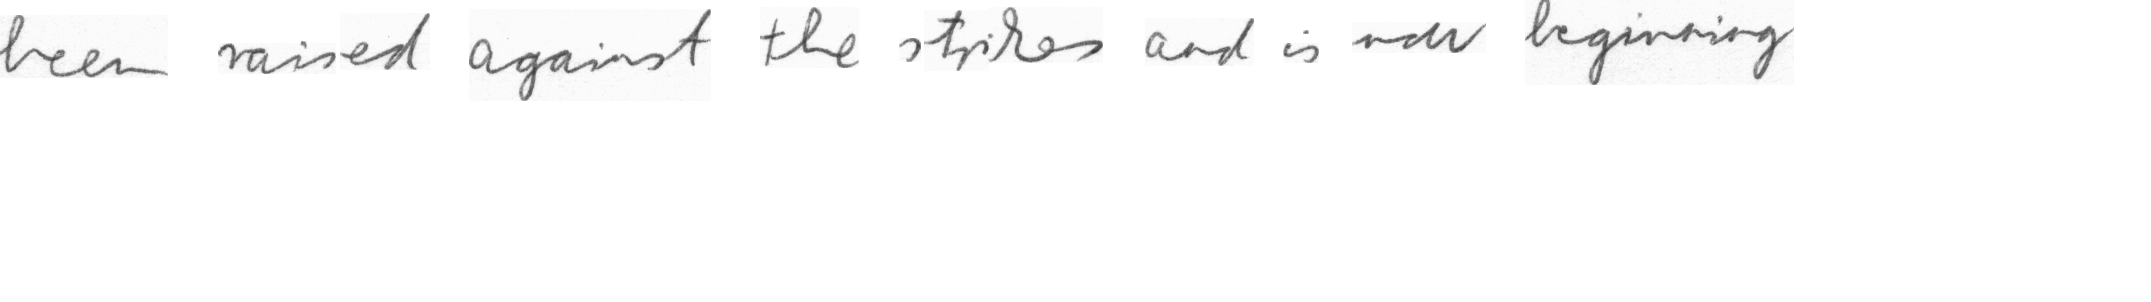 been raised against the strikes and is now beginning